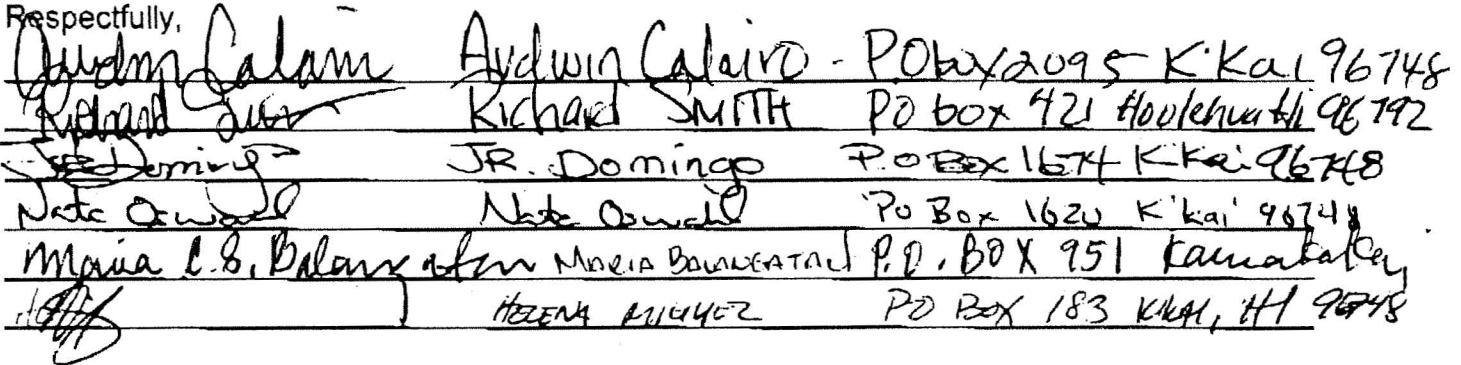 Respectfully,
Audwin Calairo - PO box 2095 K'Kai 96748
Richard SMITH PO box 421 Hoolehua HI 96792
JR. Domingo P.O Box 1674 K'Kai 96748
Nate Oswald Nate Oswald Po Box 1620 K'kai' 96748
Maria C.S. Balangatan MARIA BALANGATAN P.O. BOX 951 Kaunakakai
HELENA PO BOX 183 K'KAI, HI 96748